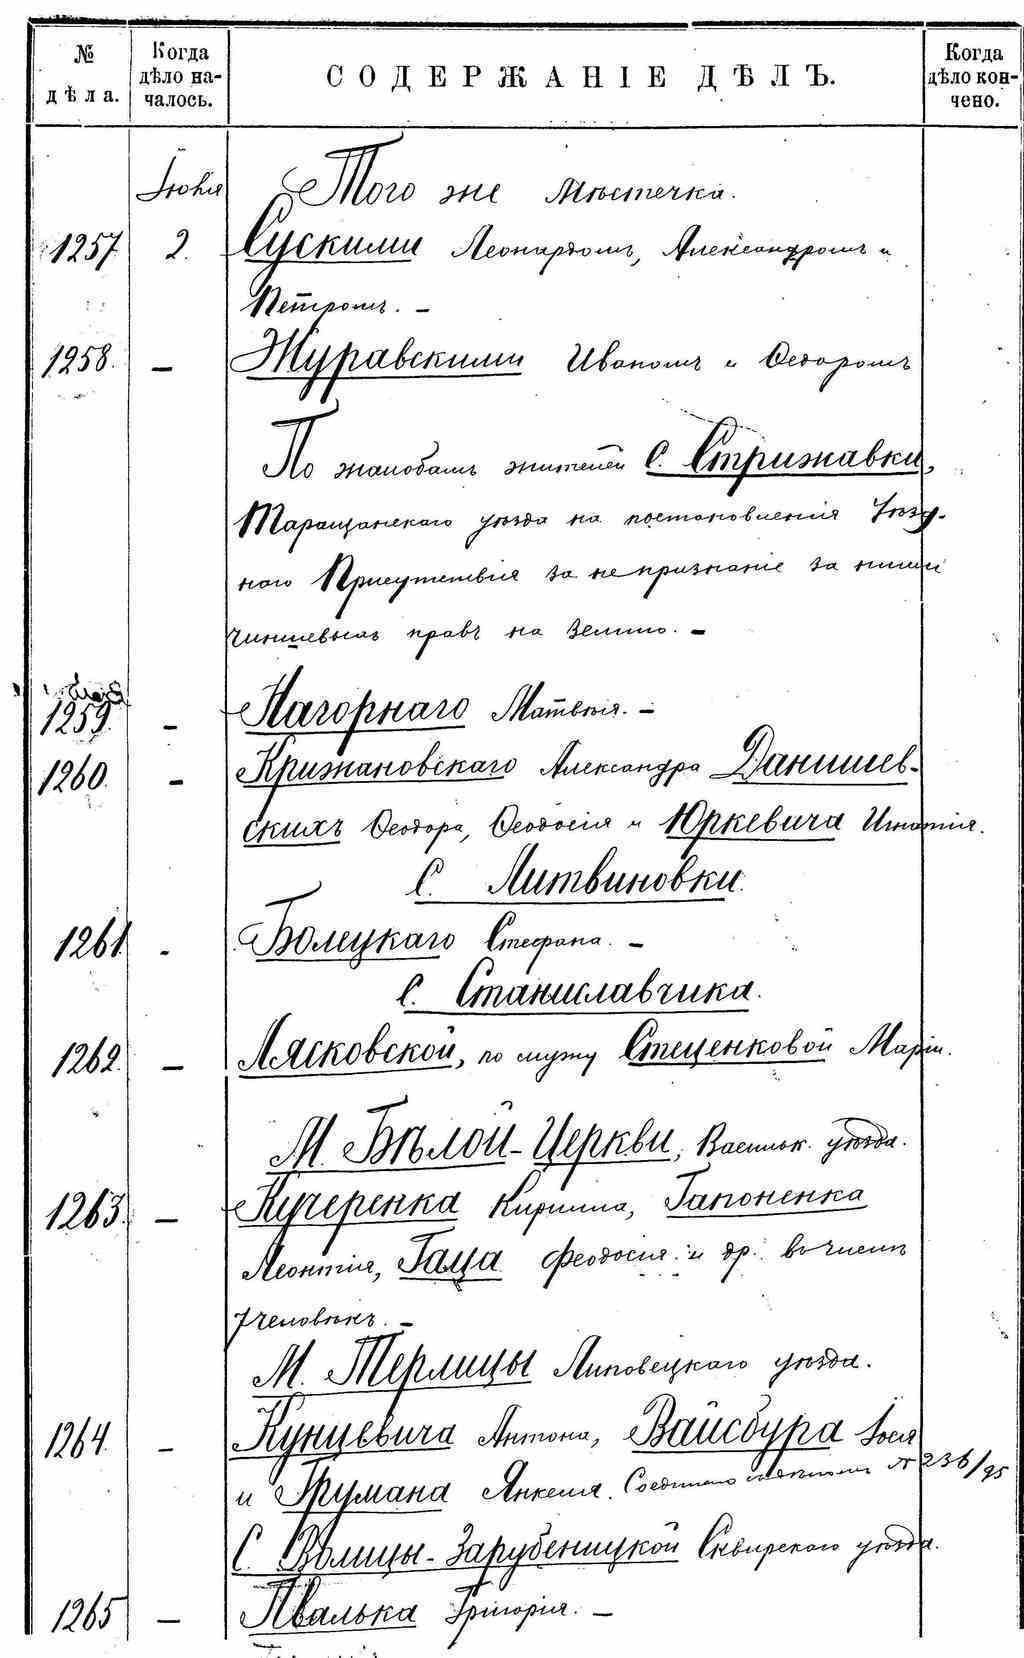 № дѣла.
Когда дѣло началось.
СОДЕРЖАНІЕ ДѢЛЪ.
Когда дѣло кончено.
Іюня Того же мѣстечка.
1257 2. Сускими Леонардомъ, Александромъ и
Петромъ. —
1258. — Журавскими Иваномъ и Ѳедоромъ
По жалобамъ жителей С. Стрижавки,
Таращанскаго уѣзда на постановленія Уѣзд-
наго Присутствія за непризнаніе за ними
чиншевыхъ правъ на землю. —
1259. — Нагорнаго Матвѣя. —
1260. — Крижановскаго Александра Данишев-
скихъ Ѳеодора, Ѳеодосія и Юркевича Игнатія.
С. Литвиновки.
1261. - Болецкаго Стефана. —
С. Станиславчика.
1262. — Лясковской, по мужу Стеценковой Маріи.
М. Бѣлой-Церкви, Васильк. уѣзда.
1263. — Кучеренка Кирилла, Гапоненка
Леонтія, Гаца Феодосія и др. въ числѣ
7 человѣкъ. —
М. Терлицы Липовецкаго уѣзда.
1264. — Кунцевича Антона, Вайсбура Іося
и Грумана Янкеля. Соединено № 236/95
С. Волицы-Зарубеницкой Сквирскаго уѣзда.
1265 — Цвалька Григорія. —